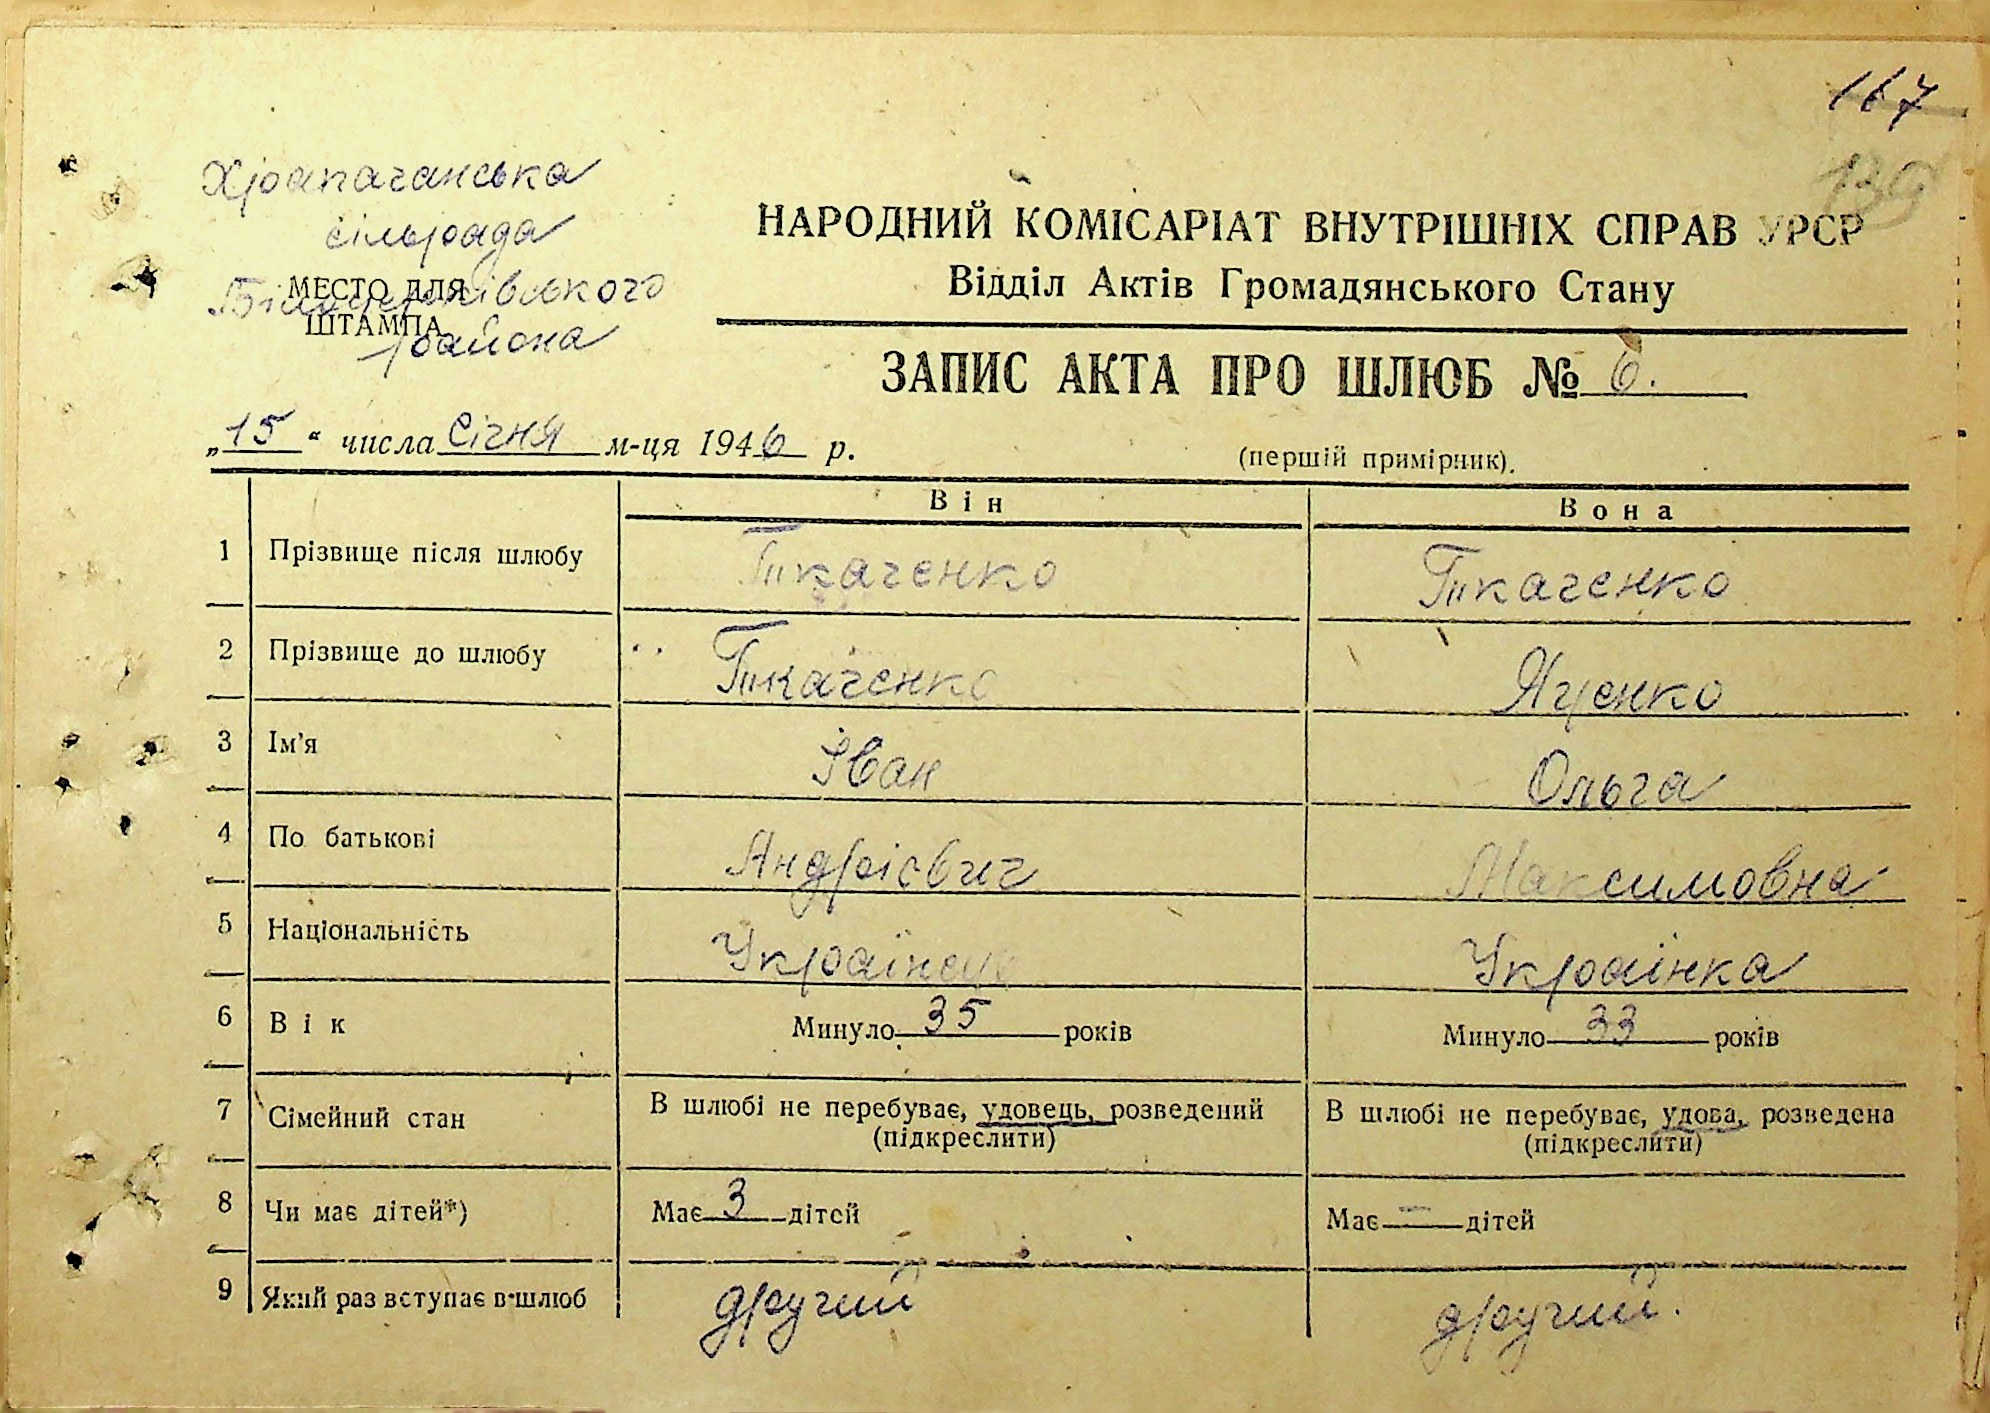 167
139
Храпачанська
сільрада
Білоцерківського
района
МЕСТО ДЛЯ
ШТАМПА
НАРОДНИЙ КОМІСАРІАТ ВНУТРІШНІХ СПРАВ УРСР
Відділ Актів Громадянського Стану
ЗАПИС АКТА ПРО ШЛЮБ № 6.
„15“ числа Січня м-ця 1946 р.
(першій примірник).
Він Вона
1 Прізвище після шлюбу Ткаченко Ткаченко
2 Прізвище до шлюбу Ткаченко Яценко
3 Ім'я Іван Ольга
4 По батькові Андрієвич Максимовна
5 Національність Українець Українка
6 Вік Минуло 35 років Минуло 33 років
7 Сімейний стан В шлюбі не перебуває, удовець, розведений В шлюбі не перебуває, удова, розведена
(підкреслити) (підкреслити)
8 Чи має дітей*) Має 3 дітей Має — дітей
9 Який раз вступає в шлюб другий другий.